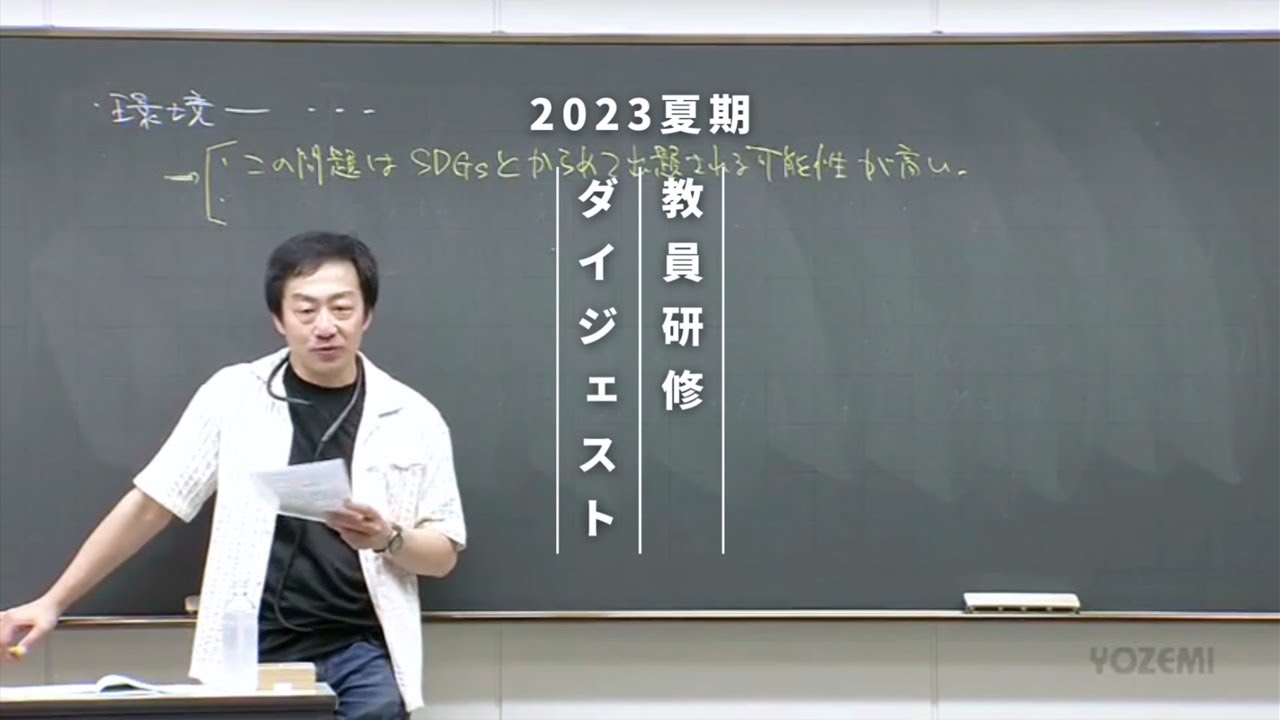 2023夏期
教員研修
ダイジェスト
・環境ー ・・・
→・この問題はSDGsとからめて出題される可能性が高い.
YOZEMI